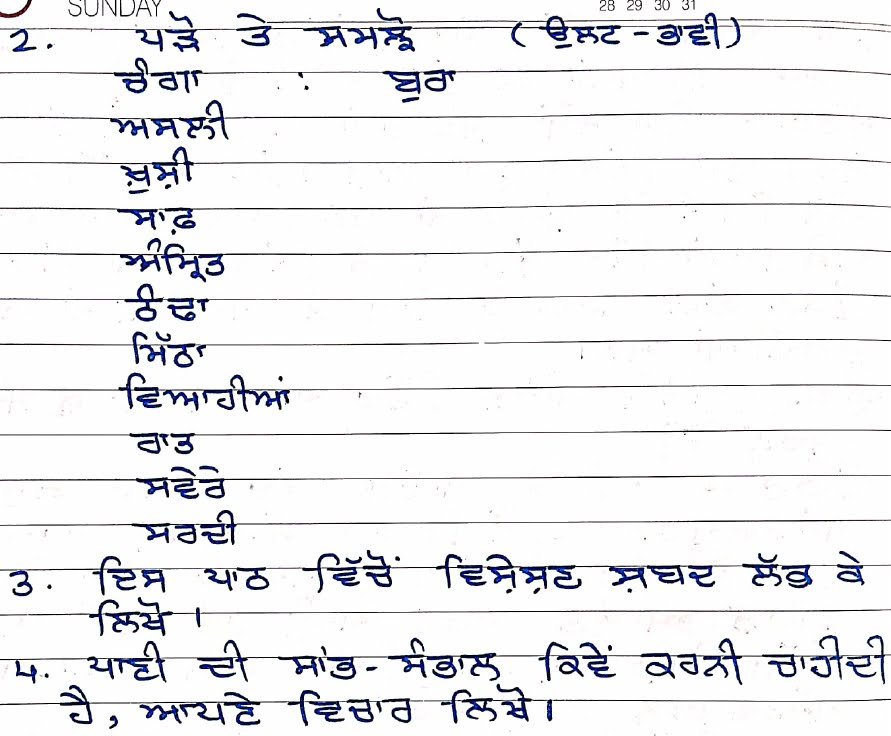 SUNDAY 28 29 30 31
2. ਪੜੋ ਤੇ ਸਮਝੋ (ਉਲਟ-ਭਾਵੀ)
ਚੰਗਾ : ਬੁਰਾ
ਅਸਲੀ
ਖ਼ੁਸ਼ੀ
ਸਾਫ਼
ਅੰਮ੍ਰਿਤ
ਠੰਢਾ
ਮਿੱਠਾ
ਵਿਆਹੀਆਂ
ਰਾਤ
ਸਵੇਰੇ
ਸਰਦੀ
3. ਇਸ ਪਾਠ ਵਿੱਚੋਂ ਵਿਸ਼ੇਸ਼ਣ ਸ਼ਬਦ ਲੱਭ ਕੇ
ਲਿਖੋ।
4. ਪਾਣੀ ਦੀ ਸਾਂਭ-ਸੰਭਾਲ ਕਿਵੇਂ ਕਰਨੀ ਚਾਹੀਦੀ
ਹੈ, ਆਪਣੇ ਵਿਚਾਰ ਲਿਖੋ।